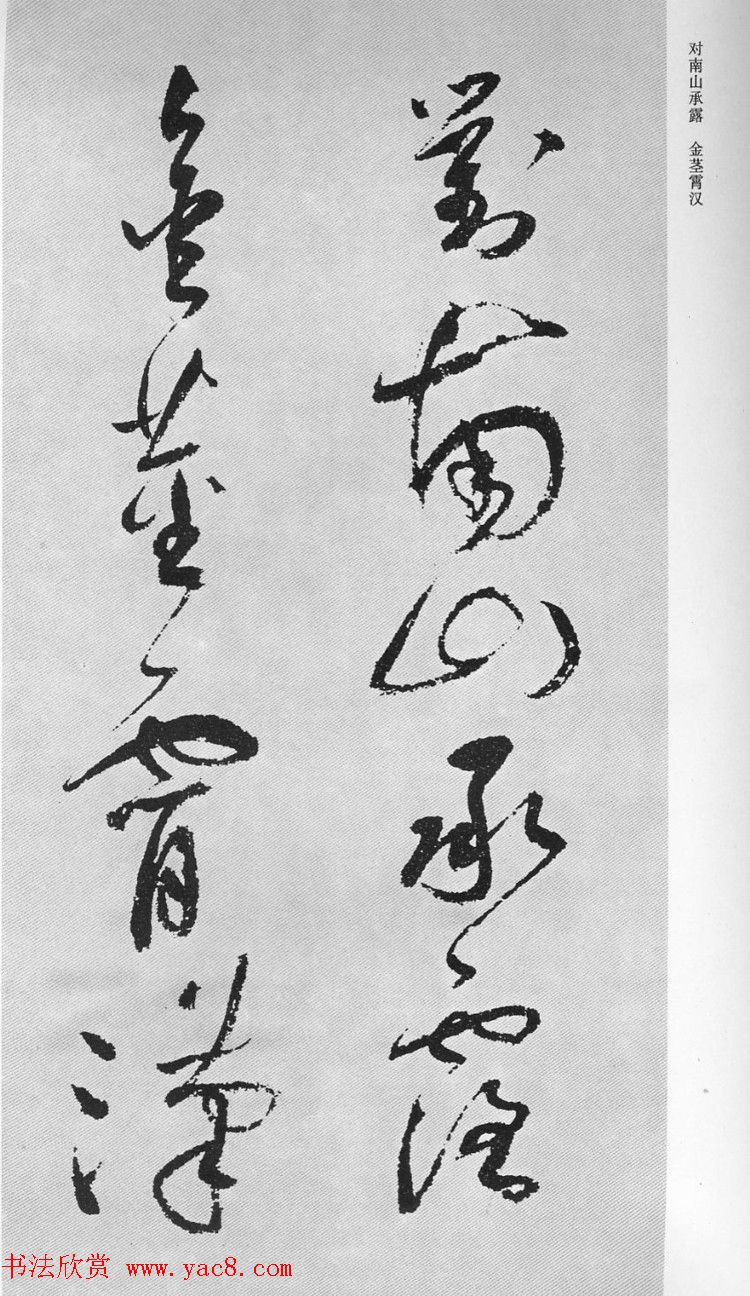 对南山承露 金茎霄汉
對南山承露
金莖霄漢
书法欣赏 www.yac8.com